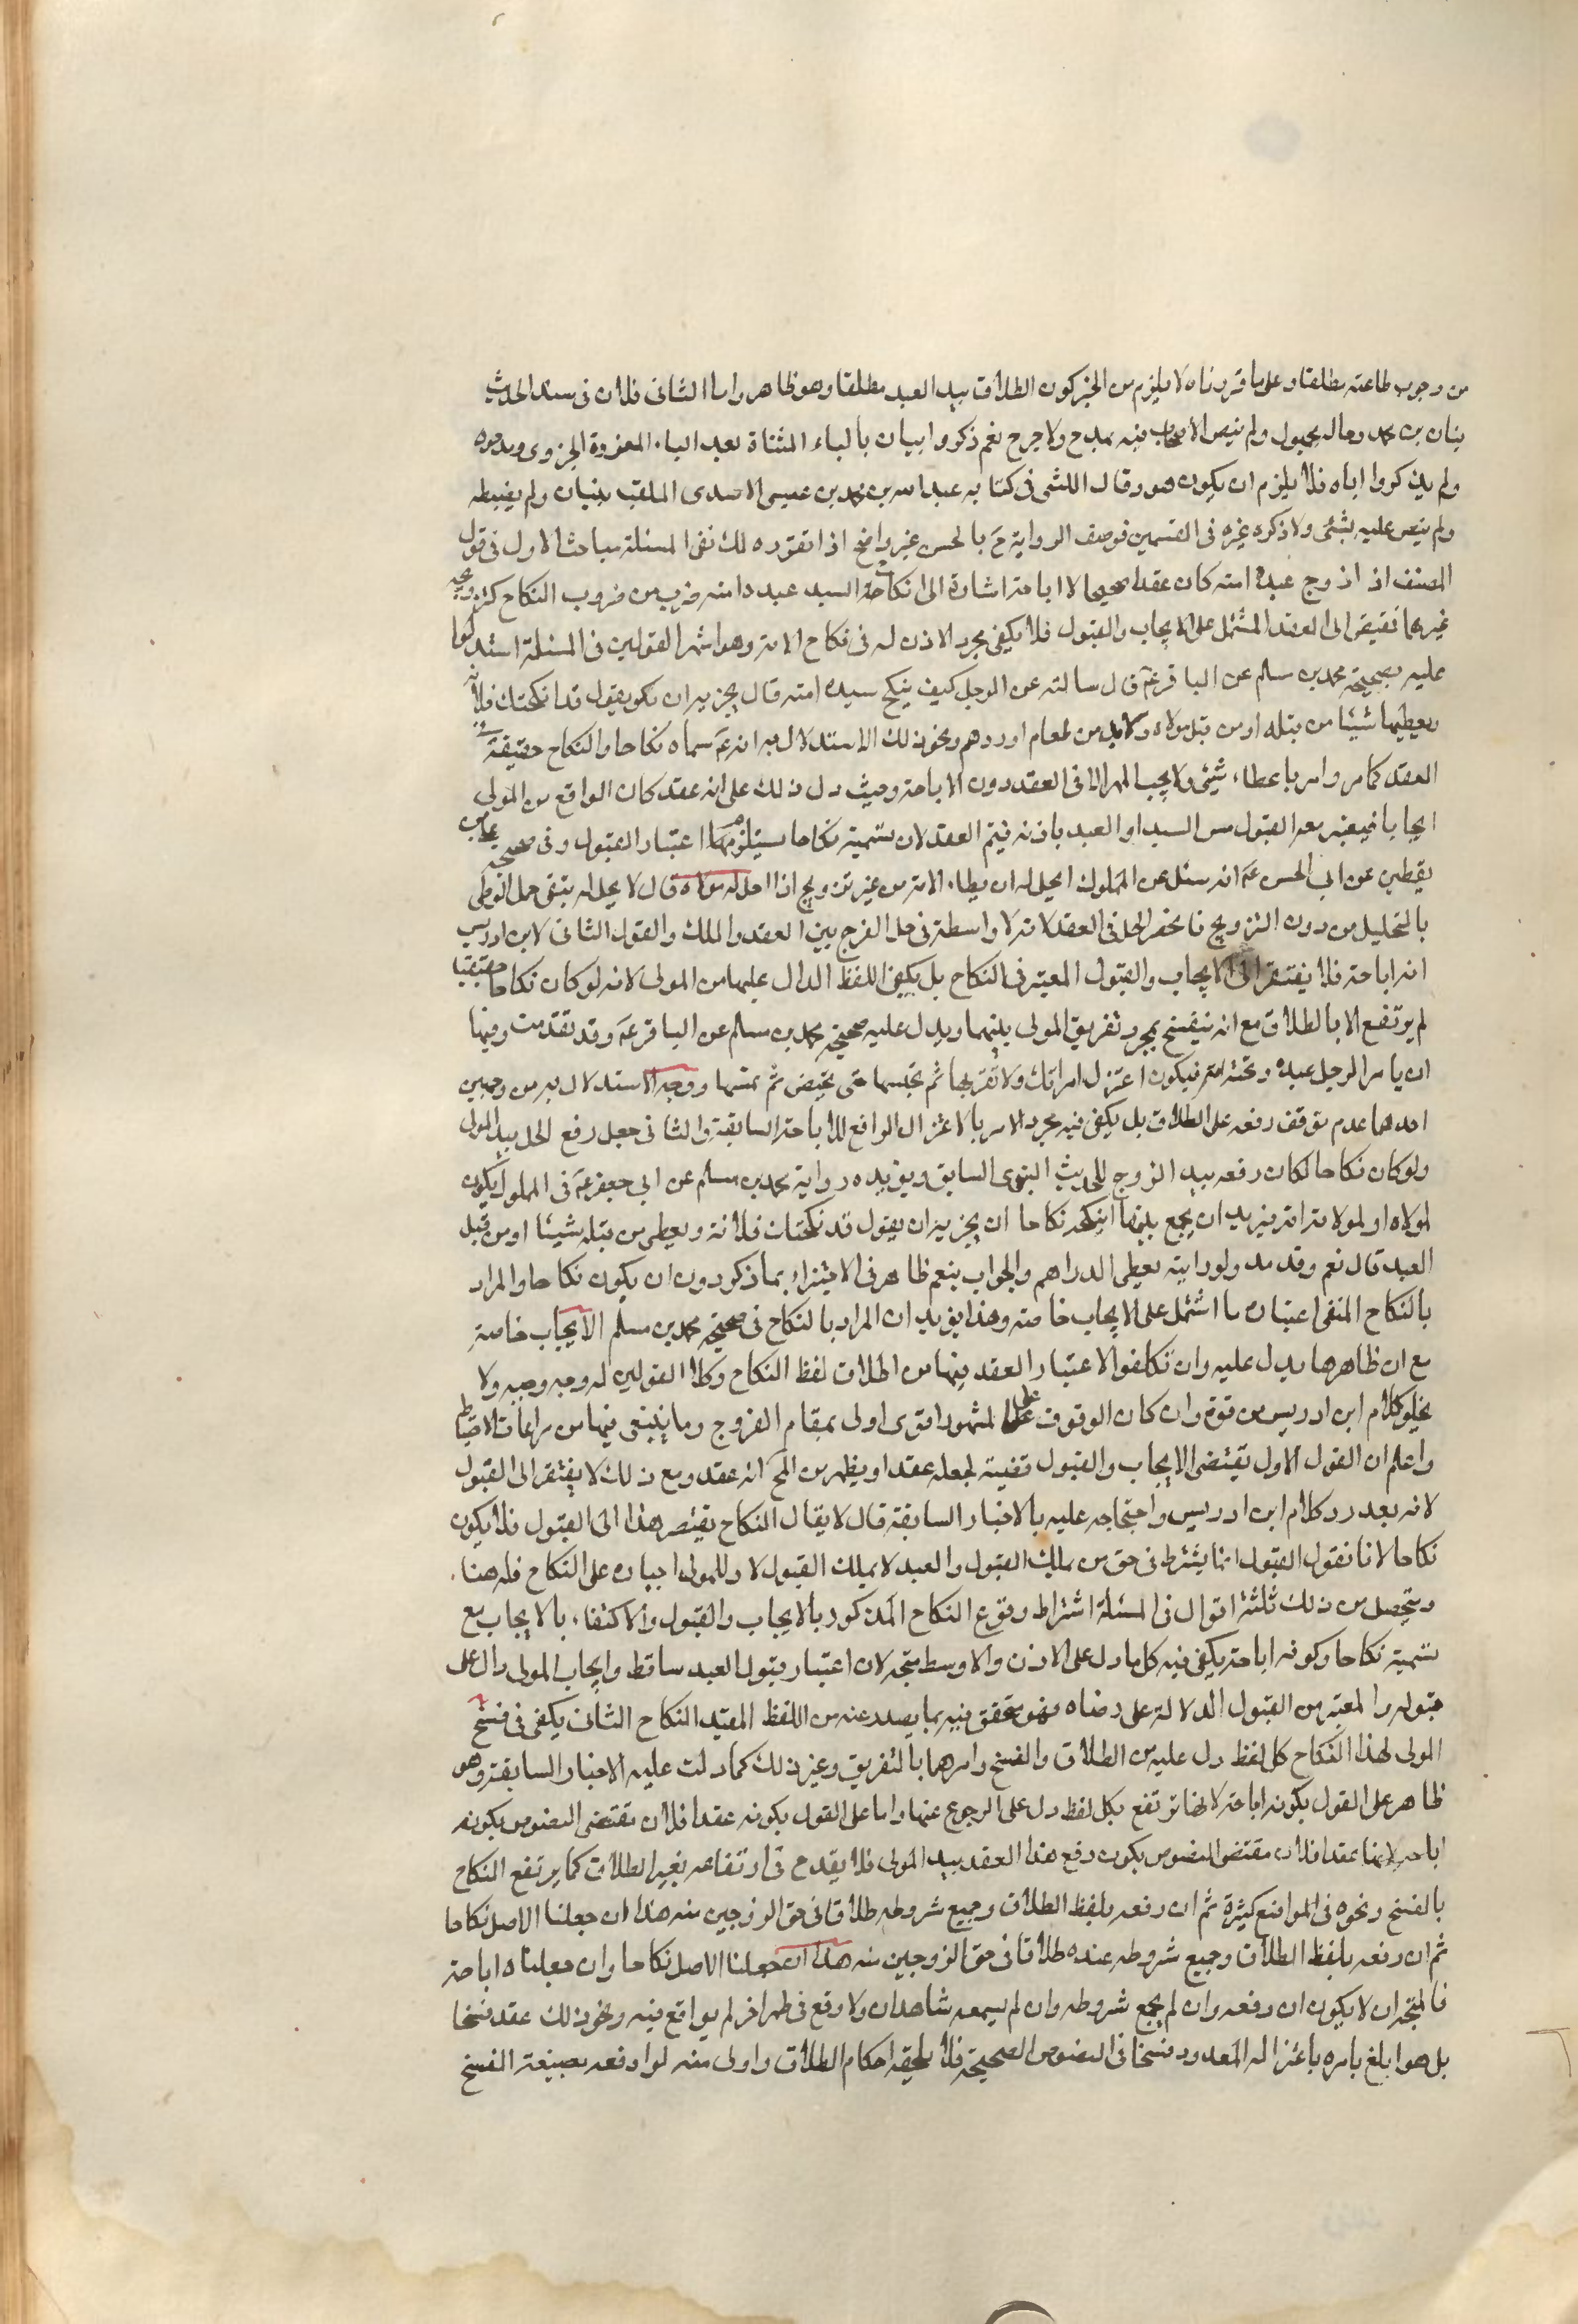 من وجوب طاعته مطلقا وعلى ما قررناه لا يلزم من الخبر كون الطلاق بيد العبد مطلقا وهو ظاهر واما الثانى فلان فى سند الحديث
بنان بن محمد وحاله مجهول ولم ينص الاصحاب فيه بمدح ولا جرح نعم ذكروا بيان بالياء المثناة بعد الباء المفردة الجزرى ومدحوه
ولم يذكروا اباه فلا يلزم ان يكون هو وقال الكشى فى كتابه عبد الله بن محمد بن عيسى الاسدى الملقب ببنان ولم يضبطه
ولم ينص عليه بشئ ولا ذكره غيره فى القسمين فوصف الرواية ح بالحسن غير واضح اذا تقرر ذلك ففى المسئلة مباحث الاول فى قول
المصنف اذا زوج عبده امته كان عقدا صحيحا لا اباحة اشارة الى ان نكاح السيد عبده امته ضرب من ضروب النكاح كتزويجه
غيرهما فيفتقر الى العقد المشتمل على الايجاب والقبول فلا يكفى مجرد الاذن له فى نكاح الامة وهو اشهر القولين فى المسئلة استدلوا
عليه بصحيحة محمد بن مسلم عن الباقر ع قال سالته عن الرجل كيف ينكح عبده امته قال يجزيه ان يقول قد انكحتك فلانة
ويعطيها شيئا من قبله او من قبل مولاه ولا بد من طعام او درهم ونحو ذلك الاستدلال به انه ع سماه نكاحا والنكاح حقيقة فى
العقد كما مر وامر باعطاء شئ ولا يجب المهر الا فى العقد دون الاباحة وحيث دل ذلك على انه عقد كان الواقع من المولى
ايجابا فيعتبر معه القبول من السيد او العبد باذنه فيتم العقد لان تسميته نكاحا يستلزم اعتبار القبول وفى صحيحة على بن
يقطين عن ابى الحسن ع انه سئل عن المملوك ايحل له ان يطاء الامة من غير تزويج اذا احل له مولاه قال لا يحل له ينفى حل الوطى
بالتحليل من دون التزويج فانحصر الحل فى العقد لانه لا واسطة فى حل الفرج بين العقد والملك والقول الثانى لابن ادريس
انه اباحة فلا يفتقر الى الايجاب والقبول المعتبر فى النكاح بل يكفى اللفظ الدال عليها من المولى لانه لو كان نكاحا حقيقيا
لم يرتفع الا بالطلاق مع انه ينفسخ بمجرد تفريق المولى بينهما ويدل عليه صحيحة محمد بن مسلم عن الباقر ع وقد تقدمت وفيها
ان يامر الرجل عبده وتحته امته فيكون اعتزل امراتك ولا تقربها ثم يحبسها حتى تحيض ثم يمسها ووجه الاستدلال به من وجهين
احدهما عدم توقف رفعه على الطلاق بل يكفى فيه مجرد الامر بالاعتزال الرافع للاباحة السابقة والثانى جعل رفع الحل بيد المولى
ولو كان نكاحا لكان رفعه بيد الزوج للحديث النبوى السابق ويؤيده رواية محمد بن مسلم عن ابى جعفر ع فى المملوك يكون
لمولاه او لمولاته امة فيريد ان يجمع بينهما اينكحه نكاحا او يجزيه ان يقول قد انكحتك فلانة ويعطى من قبله شيئا او من قبل
العبد قال نعم وقد مد ولو رايته يعطى الدراهم والجواب بنعم ظاهر فى الاجتزاء بما ذكر دون ان يكون نكاحا والمراد
بالنكاح المنفى اعتبار ما اشتمل على الايجاب خاصة وهذا يؤيد ان المراد بالنكاح فى صحيحة محمد بن مسلم الايجاب خاصة
مع ان ظاهرها يدل عليه وان تكلفوا الاعتبار العقد فيها من اطلاق لفظ النكاح وكلا القولين له وجه وجيه ولا
يخلو كلام ابن ادريس من قوة وان كان الوقوف على المشهور اقوى اولى بمقام الفروج وما ينبغى فيها من مراعات الاحتياط
واعلم ان القول الاول يقتضى الايجاب والقبول قضية لجعله عقدا ويظهر من المخ انه عقد ومع ذلك لا يفتقر الى القبول
لانه بعد رد كلام ابن ادريس واحتجاجه عليه بالاخبار السابقة قال لا يقال النكاح يفتقر هذا الى القبول فلا يكون
نكاحا لانا نقول القبول انما يشترط فى حق من يملك القبول والعبد لا يملك القبول لا وللمولى اجباره على النكاح فله هنا
ويتحصل من ذلك ثلثة اقوال فى المسئلة اشتراط وقوع النكاح المذكور بالايجاب والقبول والاكتفاء بالايجاب مع
تسميته نكاحا وكونه اباحة يكفى فيه كل ما دل على الاذن والاوسط متجه لان اعتبار قبول العبد ساقط وايجاب المولى دال على
قبوله والمعتبر من القبول الدلالة على رضاه وهو متحقق فيه بما يصدر عنه من اللفظ المفيد النكاح الثانى يكفى فى فسخ
المولى لهذا النكاح كل لفظ دل عليه من الطلاق والفسخ وامرهما بالتفريق وغير ذلك كما دلت عليه الاخبار السابقة وهو
ظاهر على القول بكونه اباحة لانها ترتفع بكل لفظ دل على الرجوع عنها واما على القول بكونه عقدا فلان مقتضى النصوص بكونه
اباحة لانها عقدا فلان مقتضى النصوص بكون رفع هذا العقد بيد المولى فلا يقدح فى ارتفاعه بغير الطلاق كما يرتفع النكاح
بالفسخ ونحوه فى المواضع كثيرة ثم ان رفعه بلفظ الطلاق وجميع شروطه طلاقا فى حق الزوجين منه هذا ان جعلنا الاصل نكاحا
ثم ان رفعه بلفظ الطلاق وجميع شروطه عنده طلاقا فى حق الزوجين منه هذا ان جعلنا الاصل نكاحا وان جعلناه اباحة
فالمتجه ان لا يكون ان رفعه وان لم يجمع شروطه وان لم يسمعه شاهدان ولا وقع فى طهر اخر لم يواقع فيه ونحو ذلك عقد فسخا
بل هو ابلغ بامره باعتزاله المعدود فسخا فى النصوص الصحيحة فلا يلحقه احكام الطلاق واولى منه لو ادفعه بصيغة الفسخ